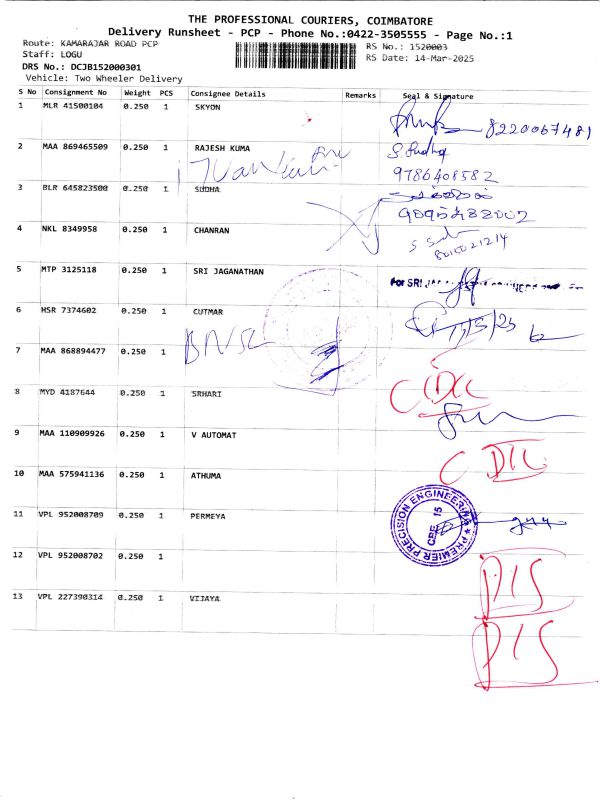 THE PROFESSIONAL COURIERS, COIMBATORE
Delivery Runsheet - PCP - Phone No.:0422-3505555 - Page No.:1
Route: KAMARAJAR ROAD PCP
RS No.: 1520003
Staff: LOGU
RS Date: 14-Mar-2025
DRS No.: DCJB152000301
Vehicle: Two Wheeler Delivery
S No Consignment No Weight PCS Consignee Details Remarks Seal & Signature
1 MLR 41500104 0.250 1 SKYON
8220067481
2 MAA 869465509 0.250 1 RAJESH KUMA S.Sudha
9786408582
3 BLR 645823500 0.250 1 SUDHA
4 NKL 8349958 0.250 1 CHANRAN
5 MTP 3125118 0.250 1 SRI JAGANATHAN For SRI
6 HSR 7374602 0.250 1 CUTMAR
7 MAA 868894477 0.250 1
8 MYD 4187644 0.250 1 SRHARI
9 MAA 110909926 0.250 1 V AUTOMAT
10 MAA 575941136 0.250 1 ATHUMA
11 VPL 952008709 0.250 1 PERMEYA PREMIER PRECISION ENGINEERING
CBE 15
12 VPL 952008702 0.250 1
13 VPL 227390314 0.250 1 VIJAYA